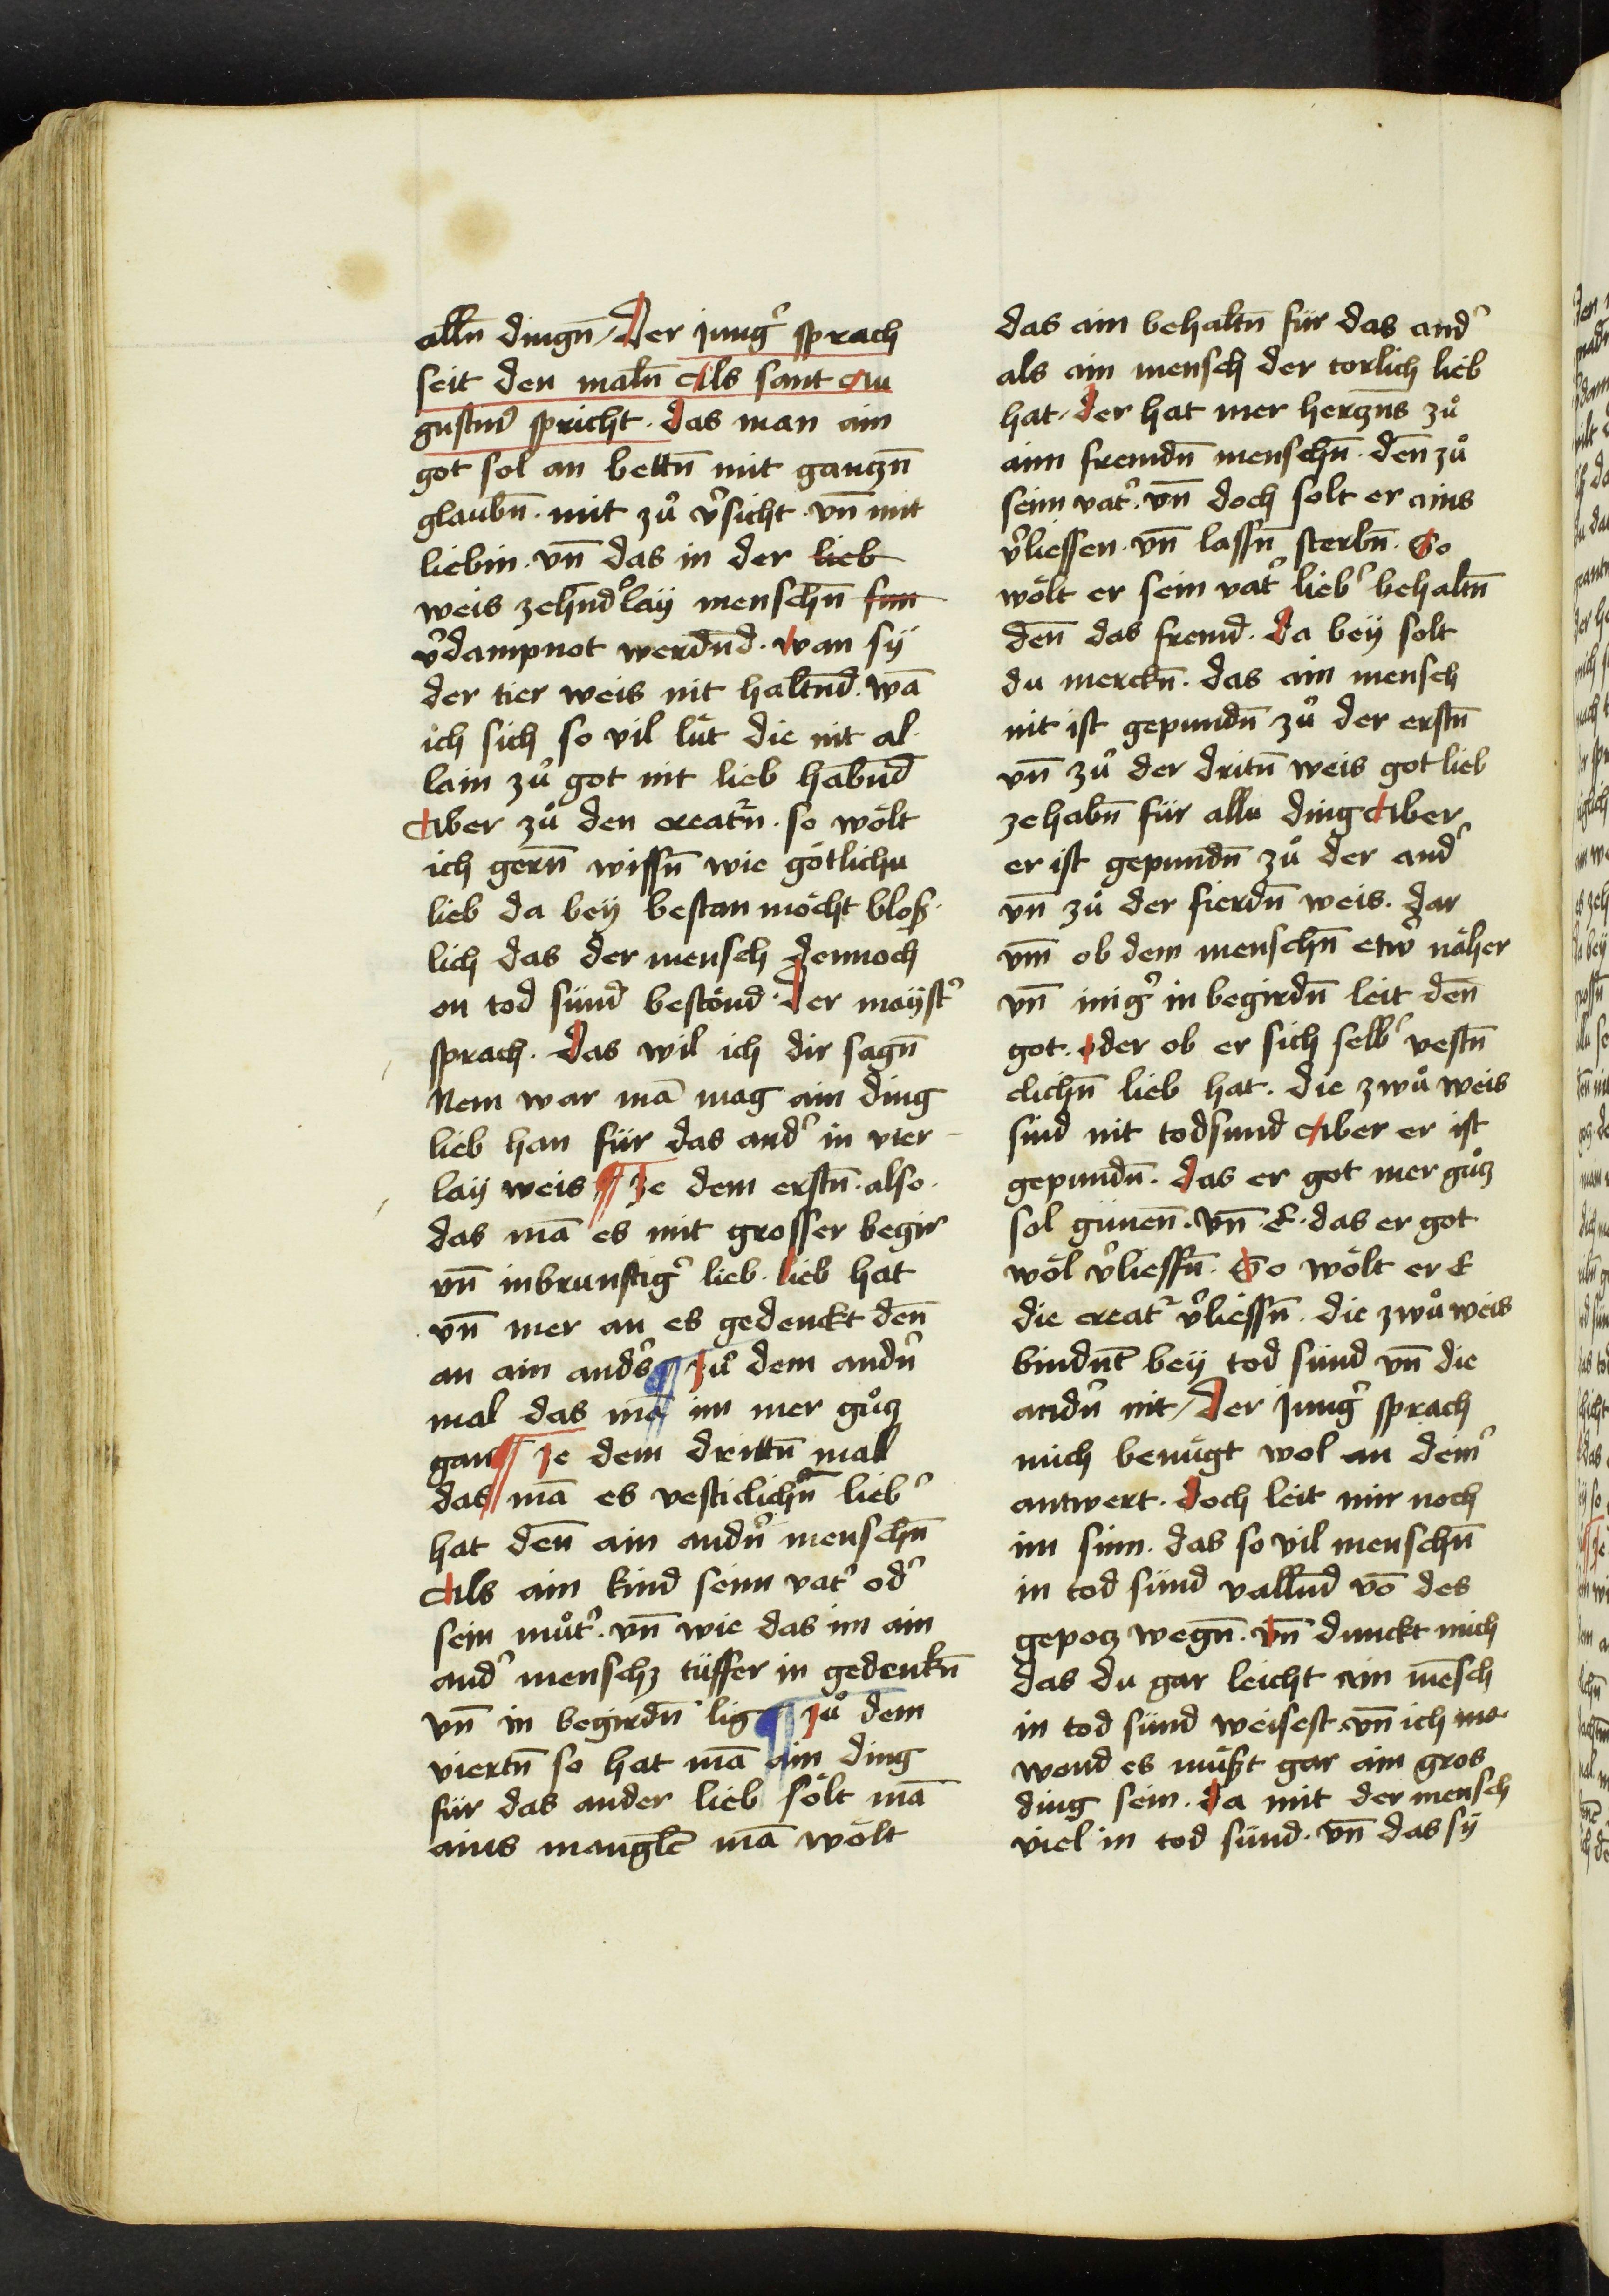 alln̄ dingn̄ / Der jungˀ sprach
seit den maln̄ Als sant Au
gustinˀ spricht · das man ain
got sol an bettn̄ mit gantzn̄
glaubn̄ · mit zů vˀsicht · vn̄ mit
liebin · vn̄ das in der lieb
weis zehn̄dˀlaÿ menschn̄ sun
vˀdampnot werdn̄d · wan sÿ
der tier weis nit haltn̄d · wā
ich sich so vil lüt die nit al
lain zů got nit lieb habn̄d
Aber zů den creatˀn · so wölt
ich gern̄ wissn̄ wie götlichu
lieb da beÿ bestan möcht blos
lich das der mensch dennoch
on tod sünd bestönd · Der maÿstˀ
sprach · das wil ich dir sagn̄
Nem war mā mag ain ding
lieb han für das andˀ in vier
laÿ weis ¶ Ze dem erstn̄ · also ·
das mā es mit grosser begir
vn̄ inbrunstigˀ lieb · lieb hat
vn̄ mer an es gedenckt den̄
an ain andˀs ¶ Zů dem andˀn
mal das mā im mer gůtz
gan ¶ Ze dem drittn̄ mal
das mā es vesticlichˀn liebˀ
hat den̄ ain andˀn menschn̄
Als ain kind seim vatˀ odˀ
sein můtˀ · vn̄ wie das im ain
andˀ menschz tüffer in gedenkn̄
vn̄ in begirdn̄ lig ¶ Zů dem
viertn̄ so hat mā ain ding
für das ander lieb sölt mā
ains manglē mā wölt
das ain behaltn̄ für das andˀ
als ain mensch der torlich lieb
hat · der hat mer hertzn̄s zů
aim fremdn̄ menschn̄ · den̄ zů
seim vatˀ · vn̄ doch solt er ains
vˀliessen · vn̄ lassn̄ sterbn̄ · So
wölt er sein vatˀ liebˀ behaltn̄
den̄ das fremd · Da beÿ solt
du merckn̄ · das ain mensch
nit ist gepundn̄ zů der erstn̄
vn̄ zů der dritn̄ weis got lieb
zehabn̄ für allu ding Aber
er ist gepundn̄ zů der andˀ
vn̄ zů der fierdn̄ weis · dar
vm̄ ob dem menschn̄ etwˀ näher
vn̄ inigˀ in begirdn̄ leit den̄
got · oder ob er sich selbˀ vestn̄
clichn̄ lieb hat · die zwů weis
sind nit todsund Aber er ist
gepundn̄ · das er got mer gůtz
sol günen̄ · vn̄ · E · das er got
wöl vˀliessn̄ · So wölt er E
die creatˀ vˀliessn̄ · die zwů weis
bindn̄t beÿ tod sünd vn̄ die
andˀn nit / Der jungˀ sprach
mich benügt wol an deimˀ
antwert · Doch leit mir noch
im sinn · das so vil menschn̄
in tod sünd valln̄d vō des
gepotz wegn̄ · vn̄ dunckt mich
das du gar leicht ain mēsch
in tod sünd weisest · vn̄ ich ma
wand es müßt gar ain gros
ding sein · da mit der mensch
viel in tod sünd · vn̄ das sÿ